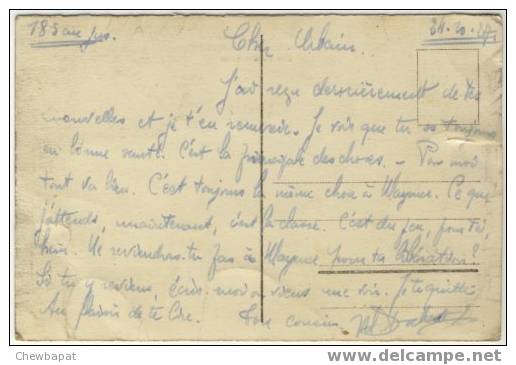 185 au jus.
24.10.27.
Cher Urbain.
J'ai reçu dernièrement de tes
nouvelles et je t'en remercie. Je vois que tu es toujours
en bonne santé. C'est la principale des choses. - Pour moi
tout va bien. C'est toujours la même chose à Mayence. Ce que
j'attends, maintenant, c'est la classe. C'est du peu, pour toi,
hein. Ne reviendras-tu pas à Mayence pour ta libération?
Si tu y reviens, écris-moi ou viens me voir. Je te quitte
Au plaisir de te lire. Ton cousin
Chewbapat
http://www.delcampe.net